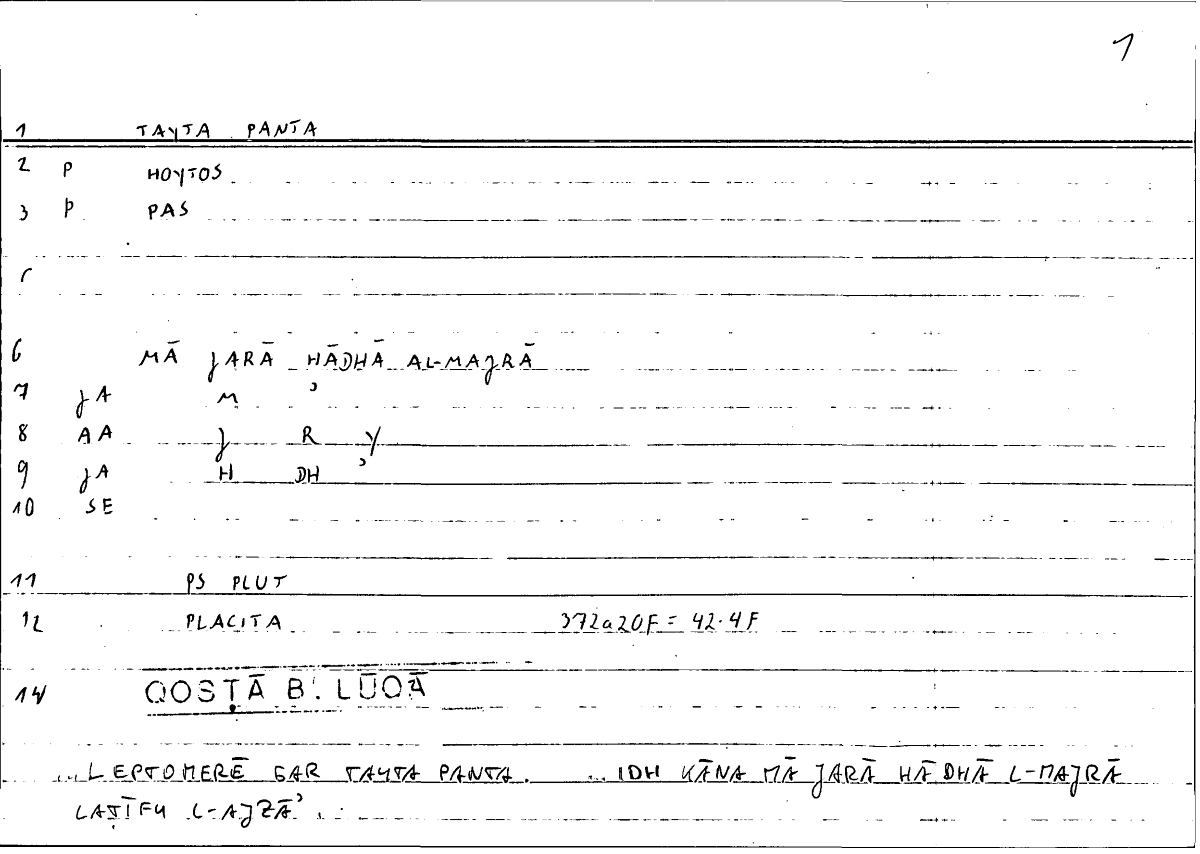 1
1 TAYTA PANTA
2 P HOYTOS
3 P PAS
6 MĀ JARĀ HĀDHĀ AL-MAJRĀ
7 JA M ʾ
8 AA J R Y
9 JA H DH ʾ
10 SE
11 PS PLUT
12 PLACITA 372a20F = 42.4F
14 QOSṬĀ B. LŪQĀ
... LEPTOMERĒ GAR TAYTA PANTA. ... IDH KĀNA MĀ JARĀ HĀDHĀ L-MAJRĀ
LAṬĪFU L-AJZĀʾ.